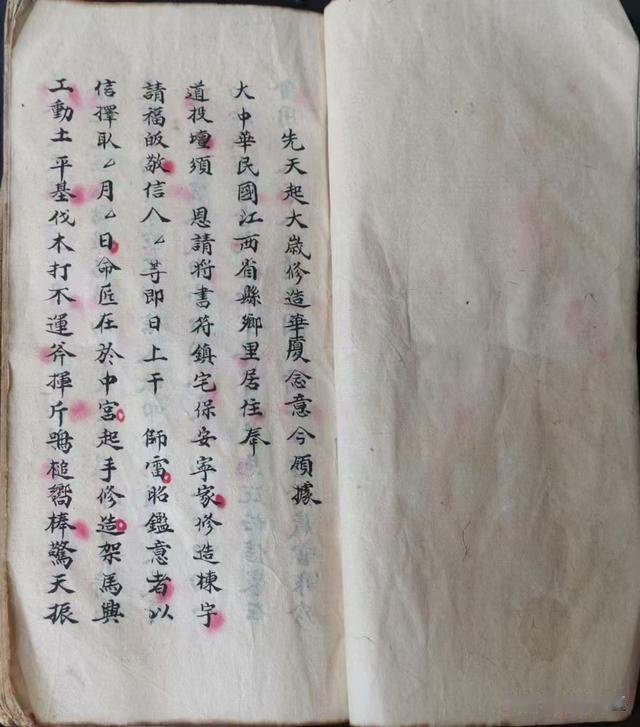 先天起大歲修造華廈念意今願據
大中華民國江西省縣鄉里居住奉
道投壇頌　恩請将書符鎮宅保安寧家修造棟宇
請福皈敬信人厶等即日上干　師雷昭鑑意者以
信擇取厶月厶日命匠在於中宮起手修造架馬興
工動土平基伐木打不運斧揮斤鳴槌嚮棒驚天振